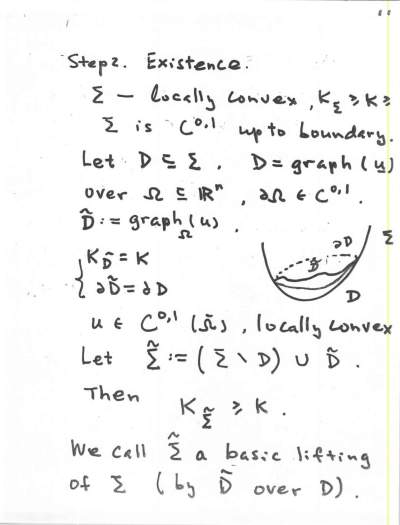 Step 2. Existence.
Σ — locally convex, K_Σ ≥ K ≥
Σ is C^{0,1} up to boundary.
Let D ⊆ Σ. D = graph(u)
over Ω ⊆ ℝⁿ, ∂Ω ∈ C^{0,1}.
D̃ := graph_Ω(u).
{ K_D̃ = K
∂D̃ = ∂D
Σ
∂D
D̃
D
u ∈ C^{0,1}(Ω̄), locally convex
Let Σ̃ := (Σ \ D) ∪ D̃.
Then
K_Σ̃ ≥ K.
We call Σ̃ a basic lifting
of Σ (by D̃ over D).